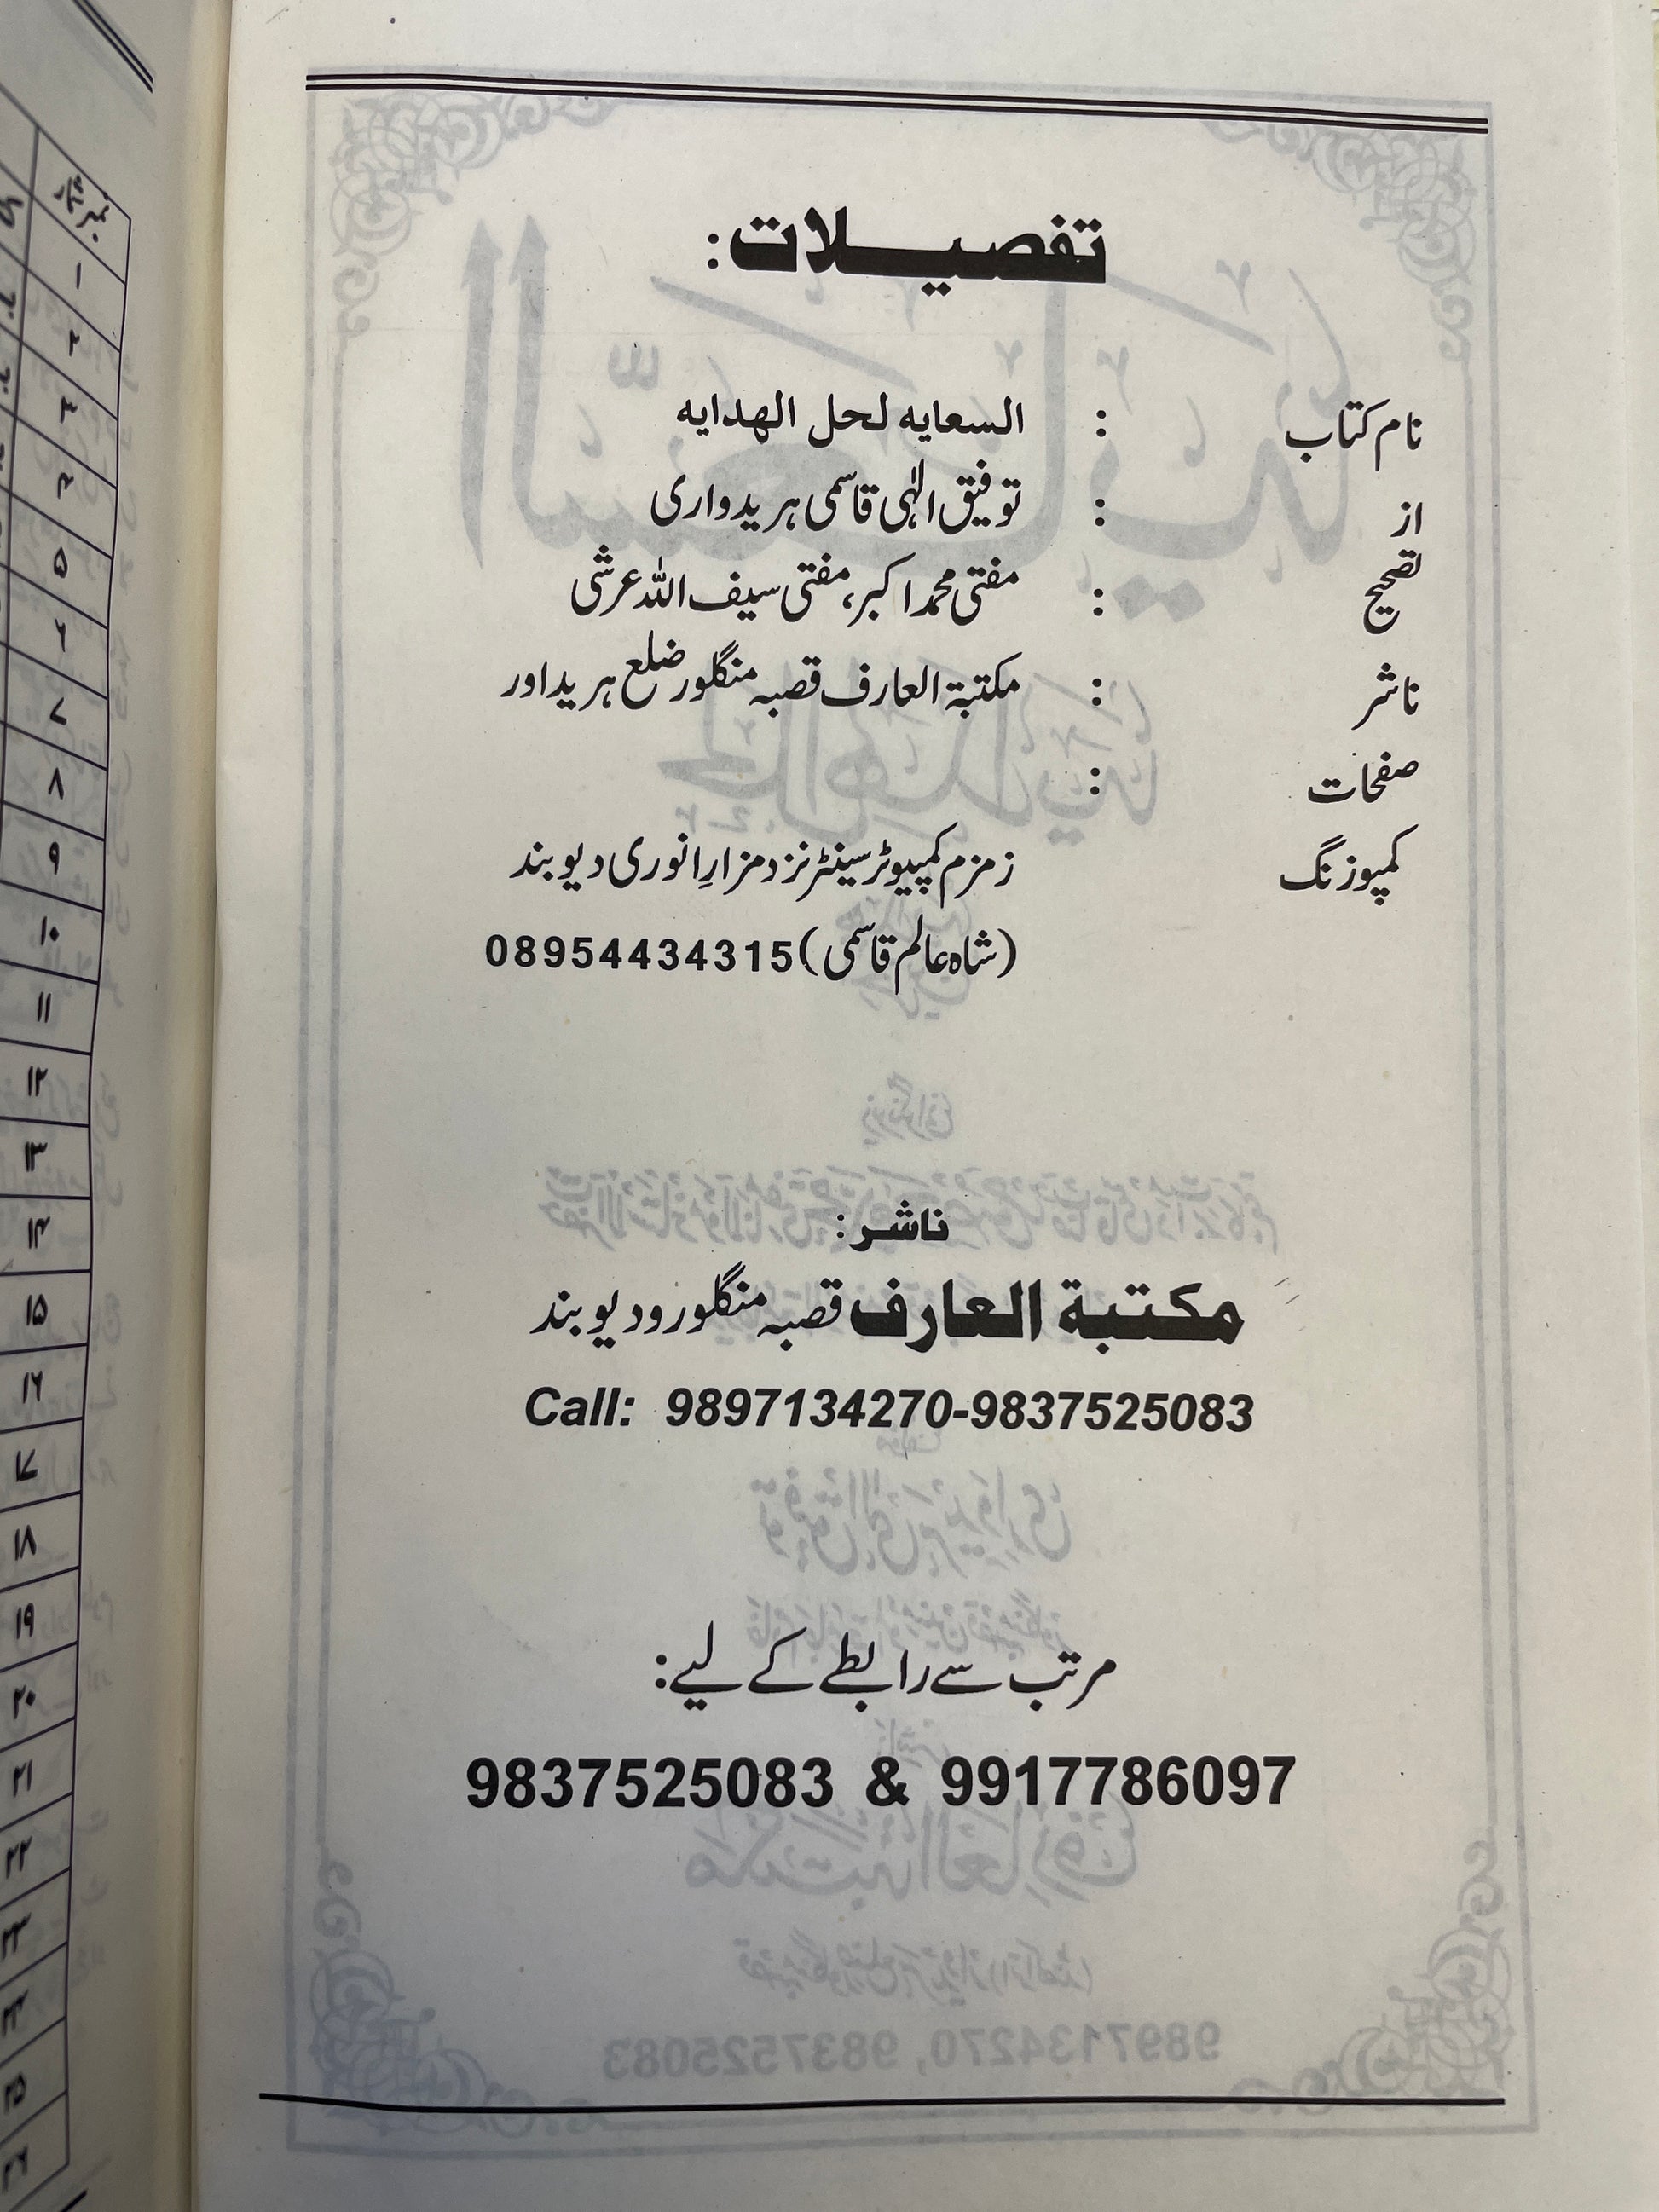 تفصیلات:
نام کتاب : السعایه لحل الهدایه
از : توفیق الٰہی قاسمی ہریدواری
تصحیح : مفتی محمد اکبر، مفتی سیف اللہ عرشی
ناشر : مکتبۃ العارف قصبہ منگلور ضلع ہریداور
صفحات :
کمپوزنگ زمزم کمپیوٹر سینٹر نزد مزارِ انوری دیوبند
(شاہ عالم قاسمی) 08954434315
ناشر:
مکتبة العارف قصبہ منگلور و دیوبند
Call: 9897134270-9837525083
مرتب سے رابطے کے لیے:
9837525083 & 9917786097
نمبر شمار
۱
۲
۳
۴
۵
۶
۷
۸
۹
۱۰
۱۱
۱۲
۱۳
۱۴
۱۵
۱۶
۱۷
۱۸
۱۹
۲۰
۲۱
۲۲
۲۳
۲۴
۲۵
۲۶